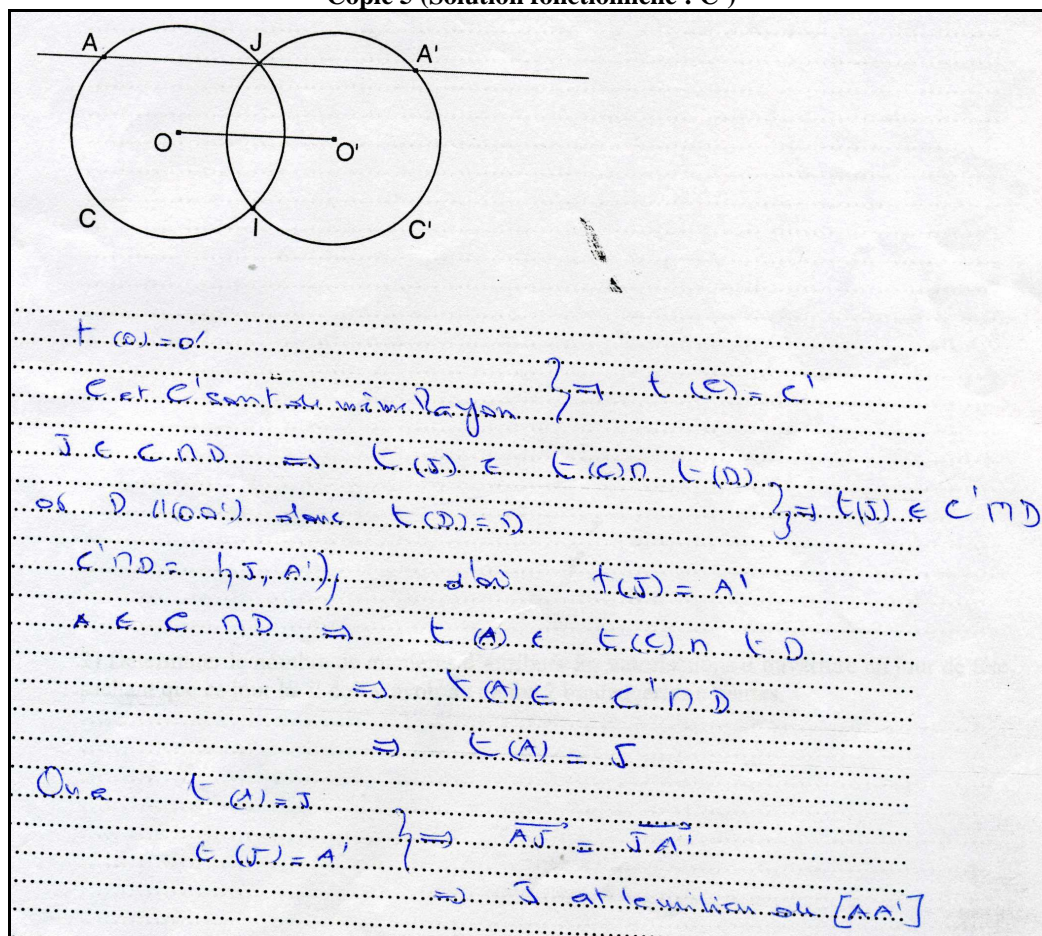 Copie 5 (Solution fonctionnelle : C )
A J A'
O O'
C I C'
t (O) = O'
C et C' sont de même Rayon } ⇒ t (C) = C'
J ∈ C ∩ D ⇒ t (J) ∈ t (C) ∩ t (D)
or D // (OO') donc t (D) = D } ⇒ t(J) ∈ C' ∩ D
C' ∩ D = {J, A'}, d'où t (J) = A'
A ∈ C ∩ D ⇒ t (A) ∈ t (C) ∩ t D
⇒ t (A) ∈ C' ∩ D
⇒ t (A) = J
On a t (A) = J
t (J) = A' } ⇒ AJ = JA'
⇒ J est le milieu de [AA']